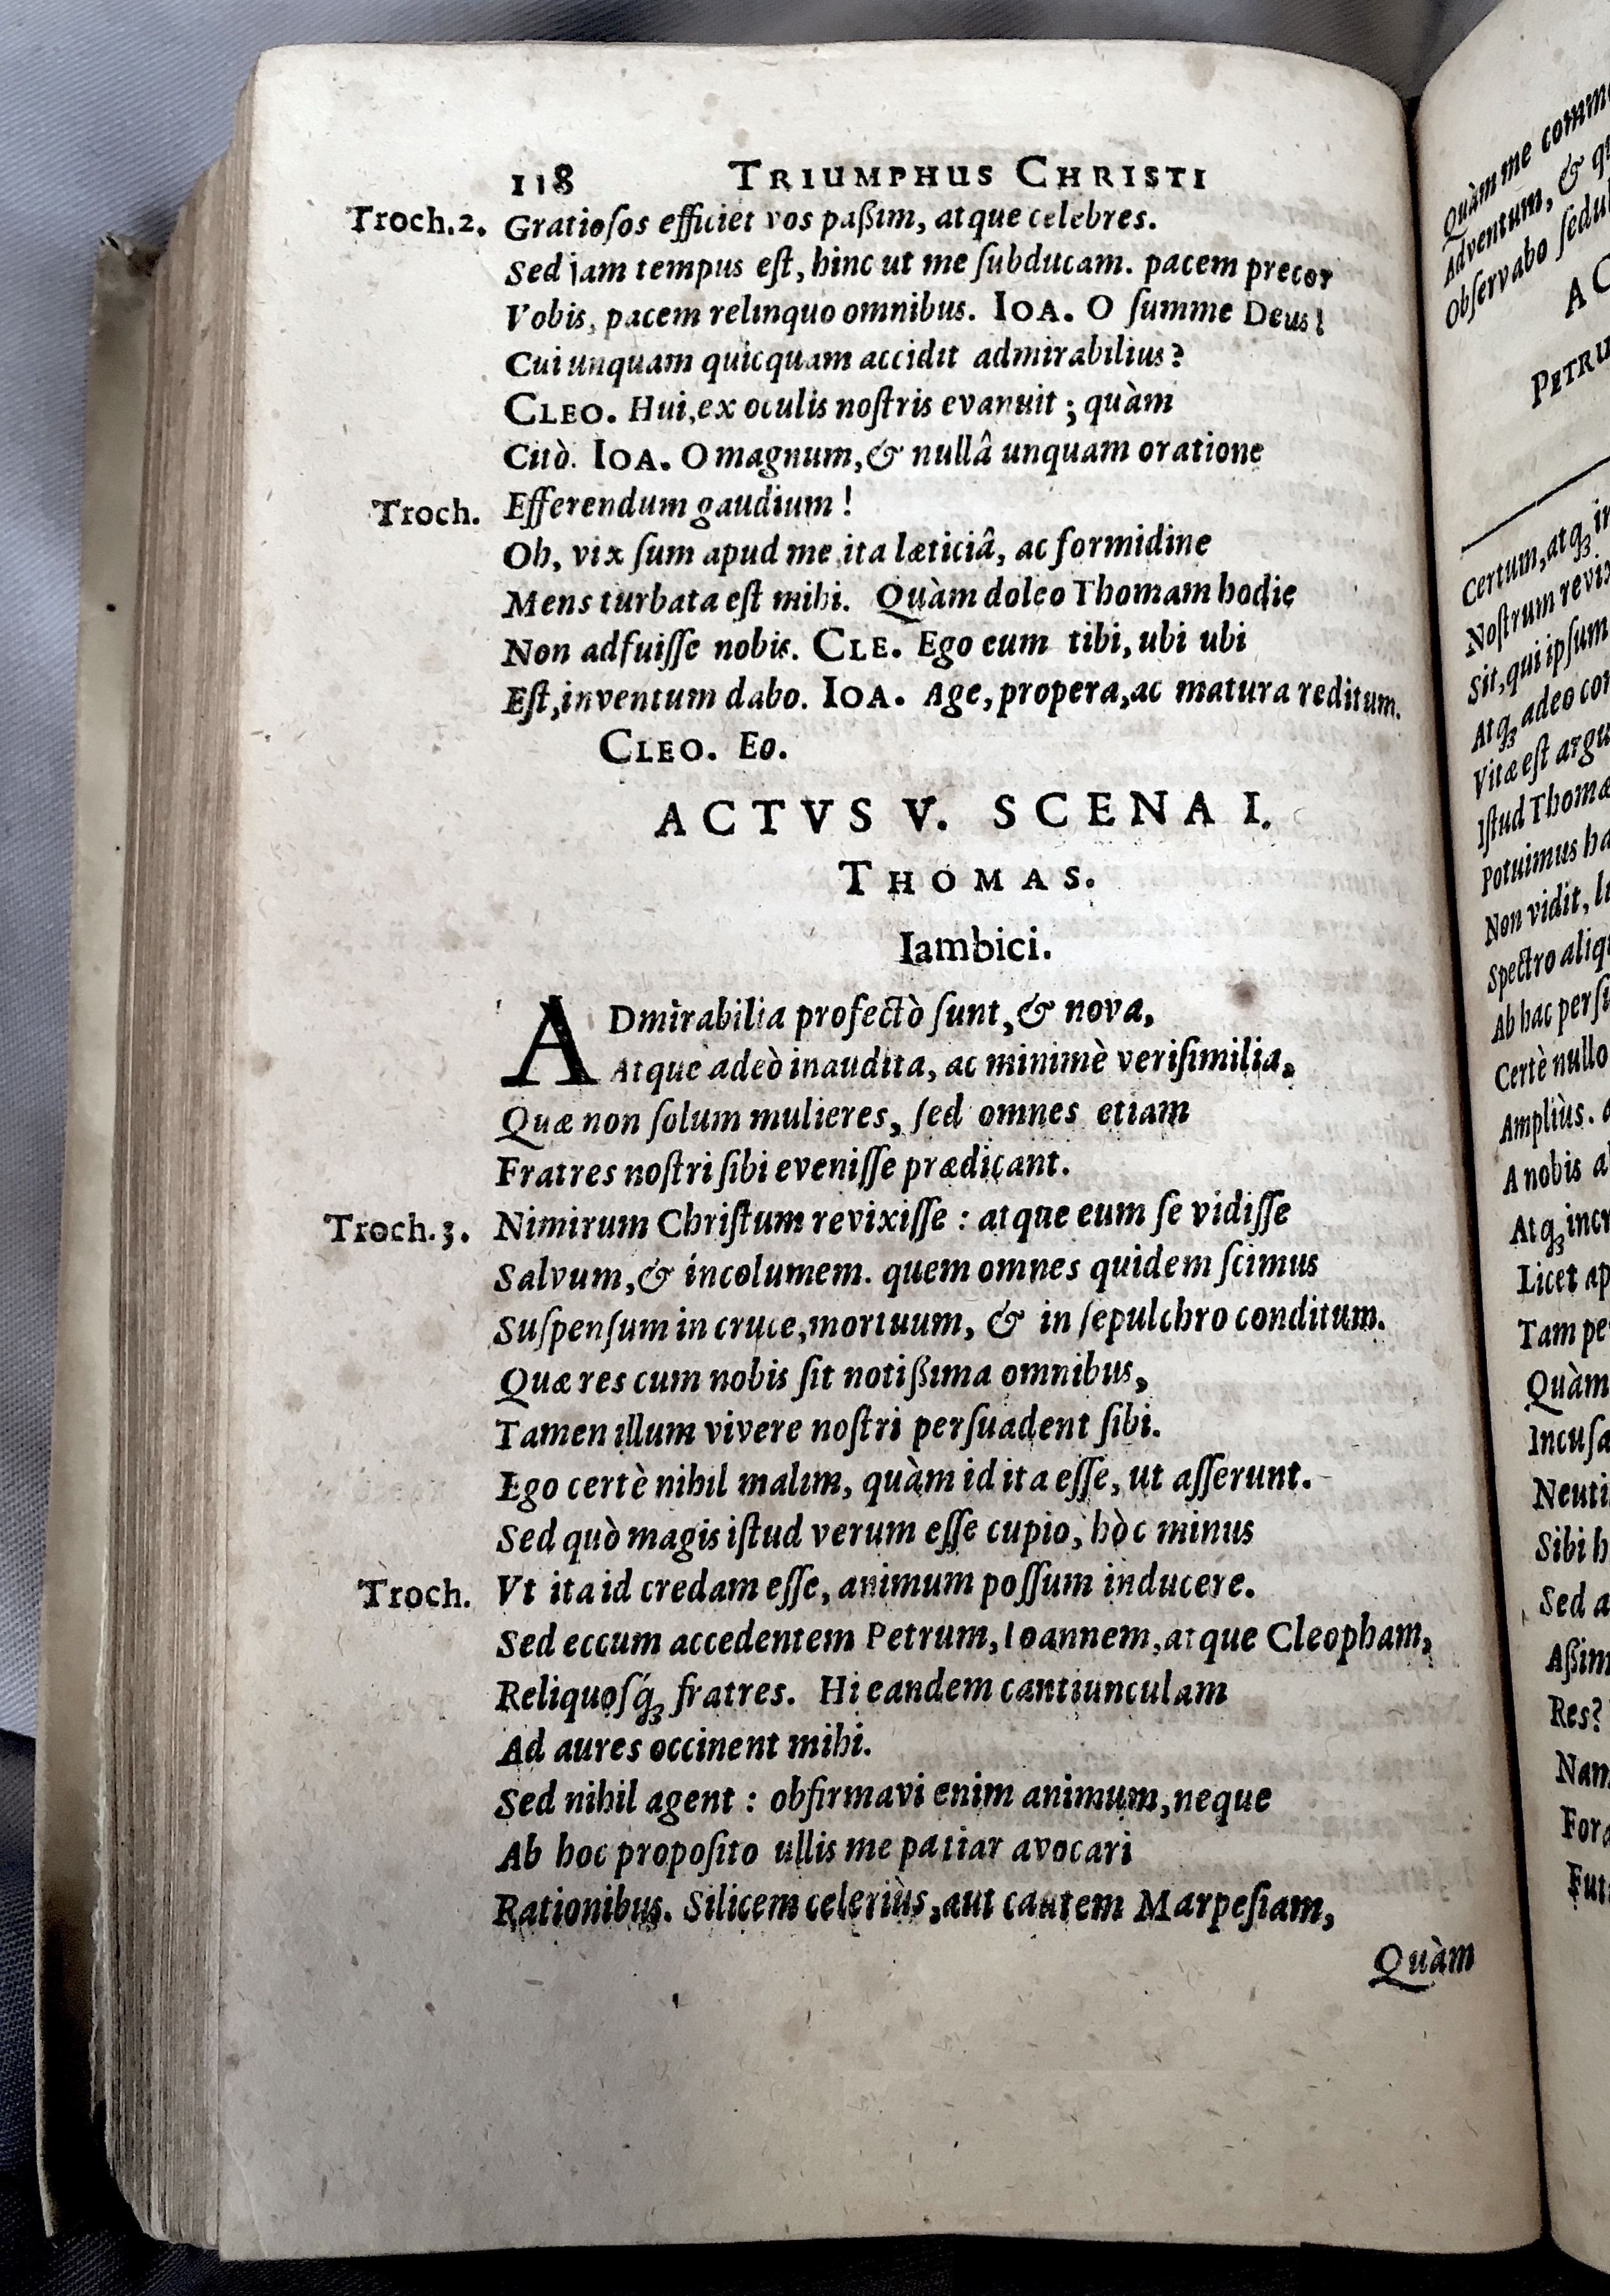 118 TRIUMPHUS CHRISTI
Troch.2. Gratioſos efficiet vos paßim, atque celebres.
Sed jam tempus eſt, hinc ut me ſubducam. pacem precor
Vobis, pacem relinquo omnibus. IOA. O ſumme Deus!
Cui unquam quicquam accidit admirabilius?
CLEO. Hui, ex oculis noſtris evanuit ; quàm
Citò. IOA. O magnum, & nullâ unquam oratione
Troch. Efferendum gaudium !
Oh, vix ſum apud me, ita læticiâ, ac formidine
Mens turbata eſt mihi. Quàm doleo Thomam hodie
Non adfuiſſe nobis. CLE. Ego eum tibi, ubi ubi
Eſt, inventum dabo. IOA. Age, propera, ac matura reditum.
CLEO. Eo.
ACTVS V. SCENA I.
THOMAS.
Iambici.
ADmirabilia profectò ſunt, & nova,
Atque adeò inaudita, ac minimè veriſimilia,
Quæ non ſolum mulieres, ſed omnes etiam
Fratres noſtri ſibi eveniſſe prædicant.
Troch.3. Nimirum Chriſtum revixiſſe : atque eum ſe vidiſſe
Salvum, & incolumem. quem omnes quidem ſcimus
Suſpenſum in cruce, mortuum, & in ſepulchro conditum.
Quæ res cum nobis ſit notißima omnibus,
Tamen illum vivere noſtri perſuadent ſibi.
Ego certè nihil malim, quàm id ita eſſe, ut aſſerunt.
Sed quò magis iſtud verum eſſe cupio, hòc minus
Troch. Vt ita id credam eſſe, animum poſſum inducere.
Sed eccum accedentem Petrum, Ioannem, atque Cleopham,
Reliquoſq́ꝫ fratres. Hi eandem cantiunculam
Ad aures occinent mihi.
Sed nihil agent : obfirmavi enim animum, neque
Ab hoc propoſito ullis me patiar avocari
Rationibus. Silicem celeriùs, aut cautem Marpeſiam,
Quàm
Quàm me
Adventum, &
Obſervabo
Certum, atqꝫ
Noſtrum
Sit, qui ipſum
Atqꝫ adeo
Vitæ eſt
Iſtud
Potuimus
Non vidit,
Spectro
Ab hac
Certè nullo
Ampliùs.
A nobis
Atqꝫ
Licet
Tam
Quàm
Sed
Res?